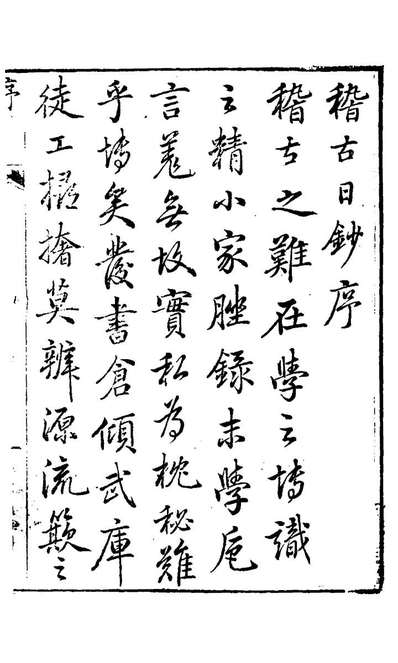 稽古日鈔序
稽古之難在學之博識
之精小家脞錄末學卮
言羌無故實私為枕秘雖
乎博矣發書倉傾武庫
徒工撏撦莫辨源流欵之
序